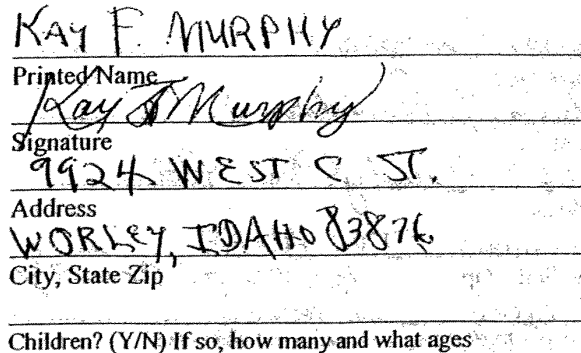 KAY F. MURPHY
Printed Name
Kay F Murphy
Signature
9924 WEST C ST.
Address
WORLEY, IDAHO 83876
City, State Zip
Children? (Y/N) If so, how many and what ages